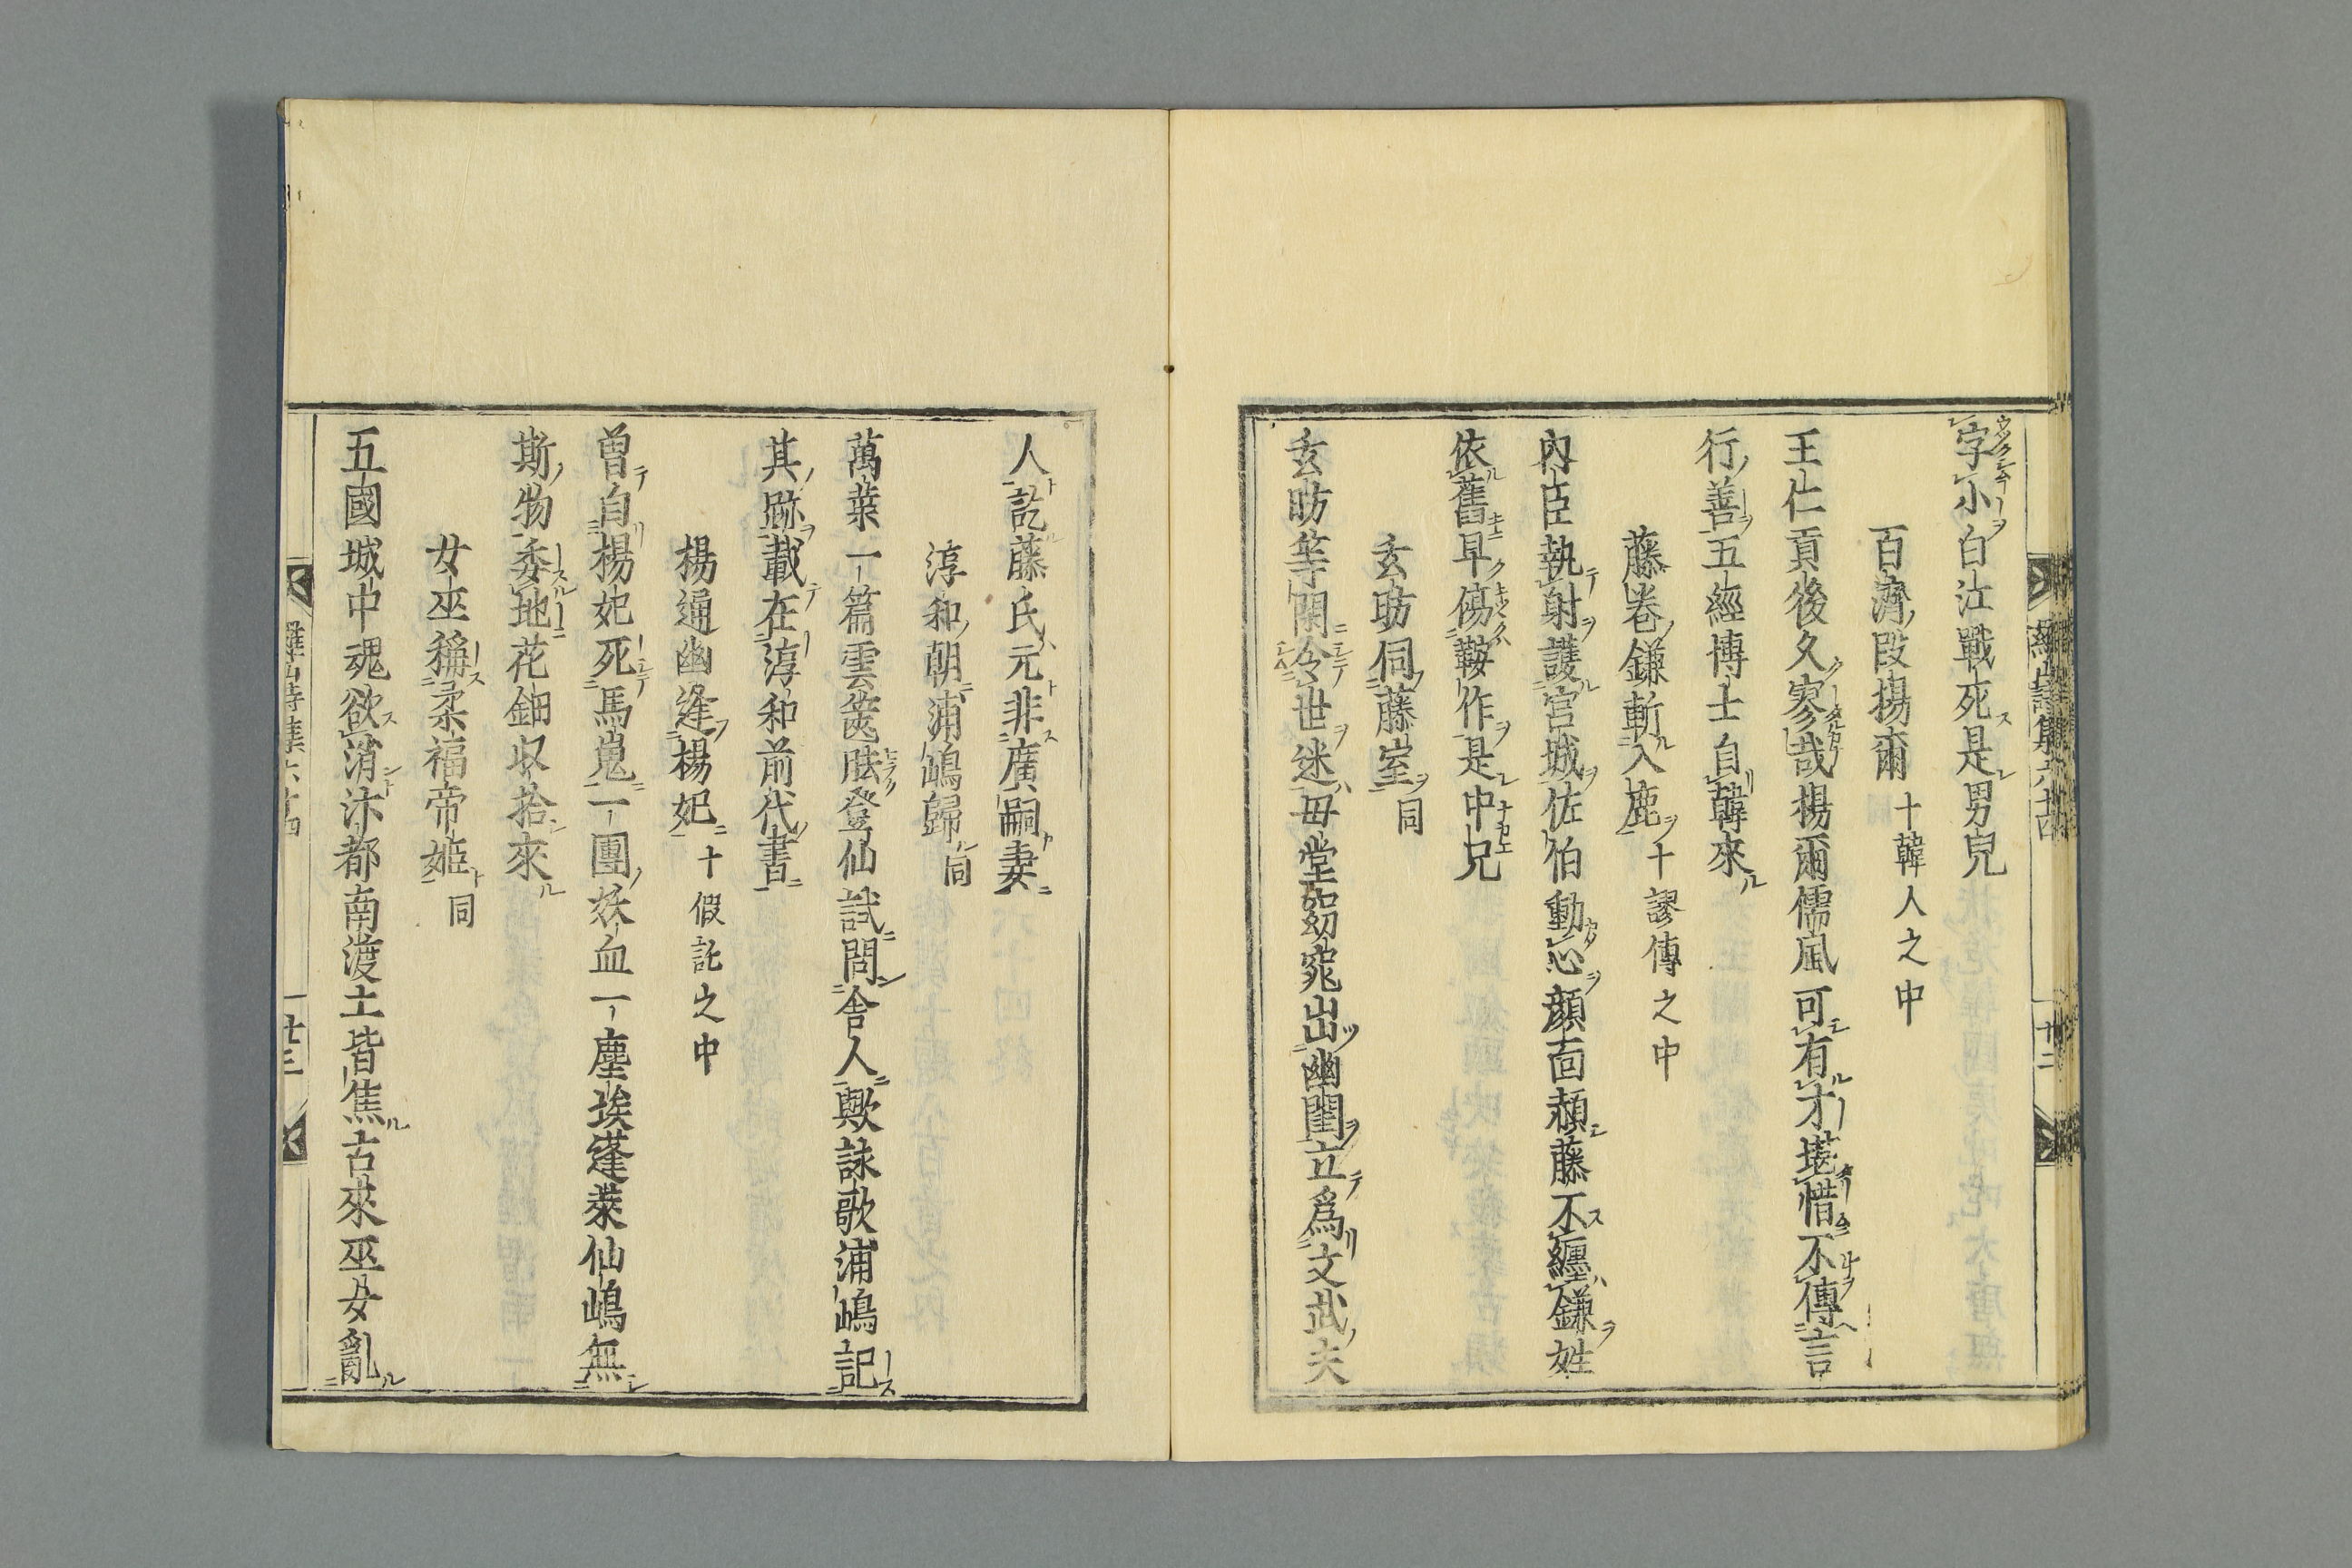 字小白江戰死是男兒
百濟段揚爾 十韓人之中
王仁貢後久寥哉揚爾儒風可有才堪惜不傳言
行善五經博士自韓來
藤卷鎌斬入鹿 十謬傳之中
內臣執射護宮城佐伯動心顏面頳藤不纏鎌姓
依舊早傷鞍作是中兄
玄昉伺藤室 同
玄昉等閑令世迷毋堂窈窕出幽閨立爲文武夫
羅山詩集六十四
廿二
人訖藤氏元非廣嗣妻
淳和朝浦嶋歸 同
萬葉一篇雲篋胠登仙試問舍人歟詠歌浦嶋記
其跡載在淳和前代書
楊通幽逢楊妃 十假託之中
曾自楊妃死馬嵬一團妖血一塵埃蓬萊仙嶋無
斯物委地花鈿収拾來
女巫稱柔福帝姬 同
五國城中魂欲消汴都南渡土皆焦古來巫女亂
羅山詩集六十四
廿三